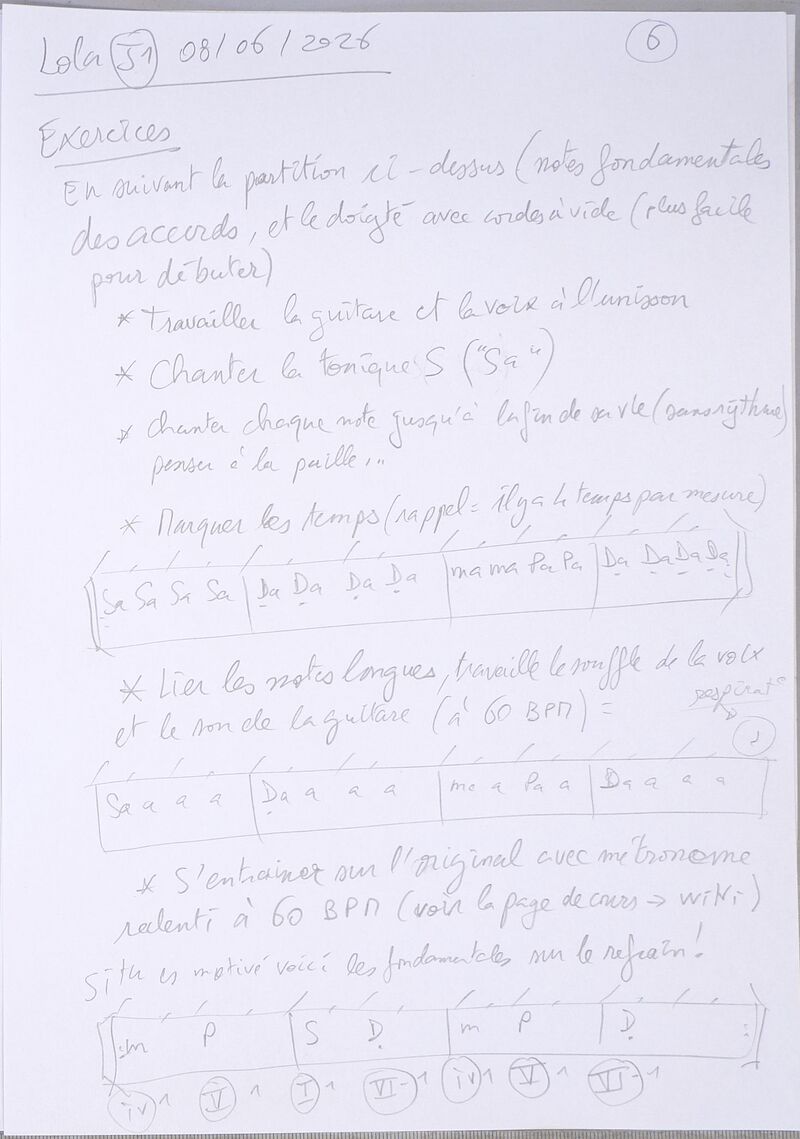 Lola S1 08/06/2026
6
Exercices
En suivant la partition ci-dessus (notes fondamentales
des accords, et le doigté avec cordes à vide (plus facile
pour débuter)
* Travailler la guitare et la voix à l'unisson
* Chanter la tonique S ("Sa")
* Chanter chaque note jusqu'à la fin de sa vie (sans rythme)
penser à la paille...
* Marquer les temps (rappel = il y a 4 temps par mesure)
Sa Sa Sa Sa | Da Da Da Da | ma ma Pa Pa | Da Da Da Da
* Lier les notes longues, travaille le souffle de la voix
et le son de la guitare (à 60 BPM) =
respirat°
1
Sa a a a | Da a a a | ma a Pa a | Da a a a
* S'entrainer sur l'original avec métronome
ralenti à 60 BPM (voir la page de cours → wiki)
Si tu es motivé voici les fondamentales sur le refrain!
m P | S D | m P | D
iv^1 V^1 I^1 VI-^1 iv^1 V^1 VI-^1